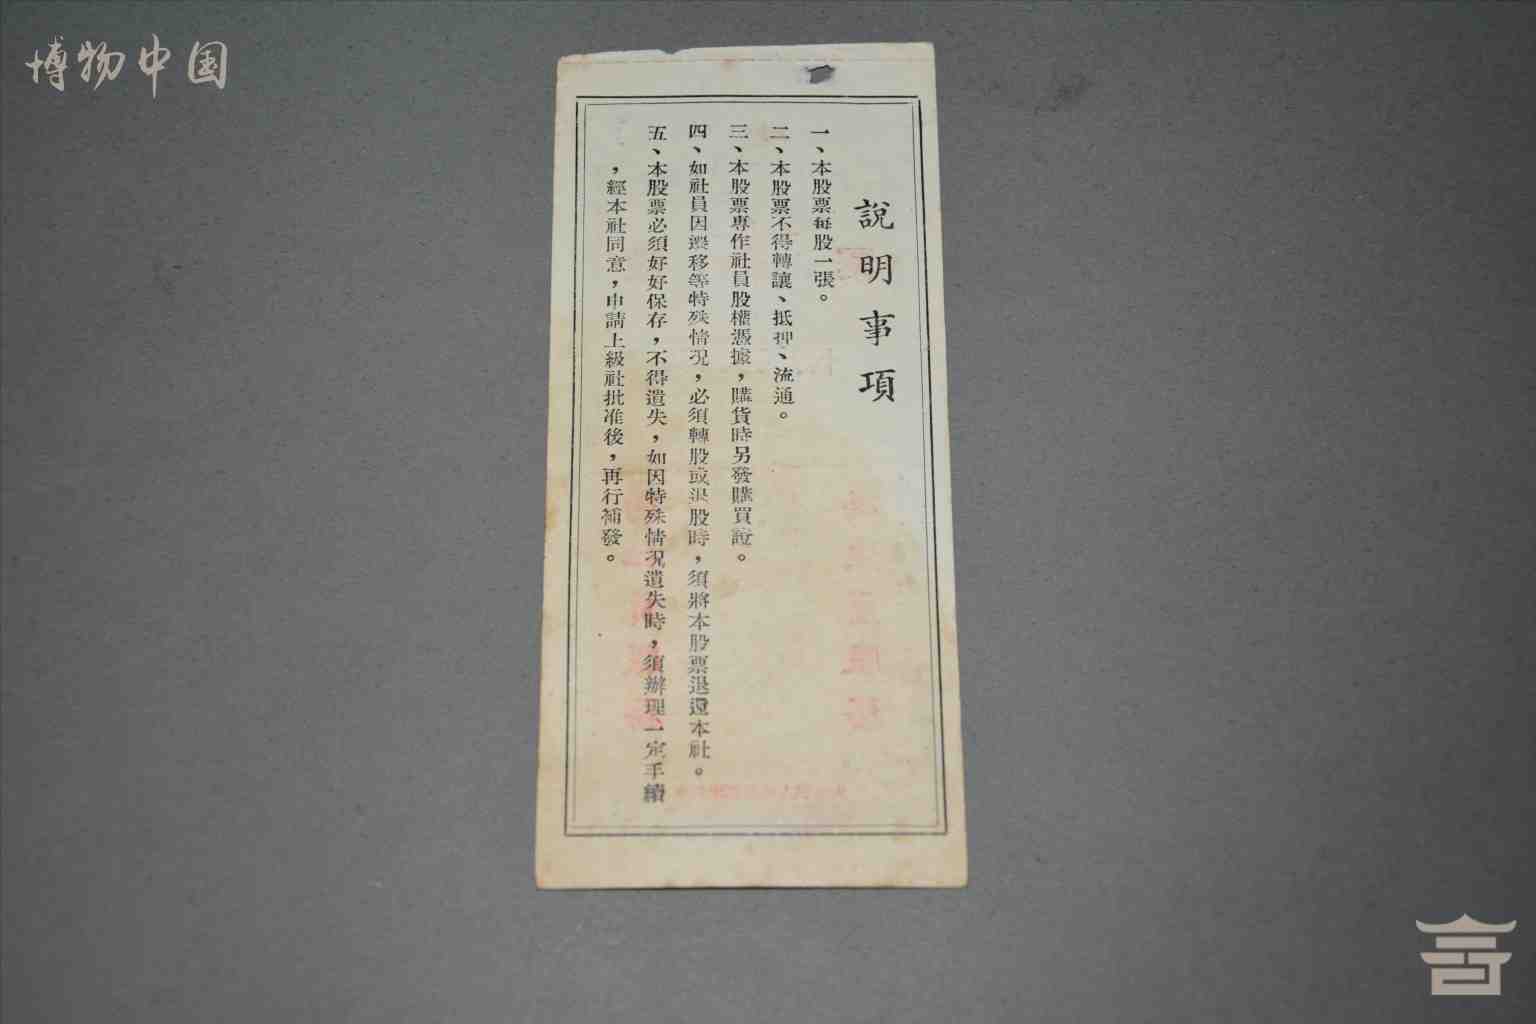 博物中国
說明事項
一、本股票每股一張。
二、本股票不得轉讓、抵押、流通。
三、本股票專作社員股權憑據，購貨時另發購買證。
四、如社員因遷移等特殊情况，必須轉股或退股時，須將本股票退還本社。
五、本股票必須好好保存，不得遺失，如因特殊情况遺失時，須辦理一定手續
，經本社同意，申請上級社批准後，再行補發。